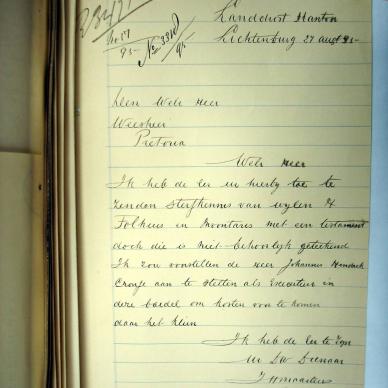 Landdrost Kantoor
Lichtenburg 27 aug 95-
No 3310/95
Den Wels Heer
Weesheer
Pretoria
Wels Heer
Ik heb de eer u hierby toe te
zenden sterfkennis van wylen H
en Inventaris met een testament
doch die is niet behoorlyk geteekend
Ik zou voorstellen de heer Johannes Hendrick
Cronje aan te stellen als Executeur in
deze boedel om kosten voor te komen
daar het klein
Ik heb de eer te zyn
Uw Dw Dienaar